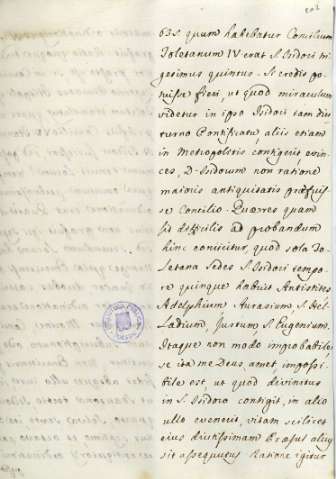 202
635 quum habebatur Concilium
Toletanum IV erat S. Isidori tri
gesimus quintus. Si credis po
tuisse fieri, ut quod miraculum
videtur in ipso Isidori tam diu
turno Pontificatu, aliis etiam
in Metropolitis contigerit, evin
ces, D. Isidorum non ratione
maioris antiquitatis præfuis
se Concilio. Quæres quam
sid difficile ad probandum
hinc conicitur, quod sola To
letana Sedes S. Isidori tempo
re quinque habuit Antistites
Adelphium Aurasium S. Hel
ladium, Justum S. Eugenium.
Itaque non modo improbabile,
se ita me Deus amet, impossi
bile est, ut quod divinitus
in S. Isidoro contigit, in alio
ullo evenerit, vitam scilicet
eius diutissimam Præsul aliq
sit assequutus. Ratione igitur